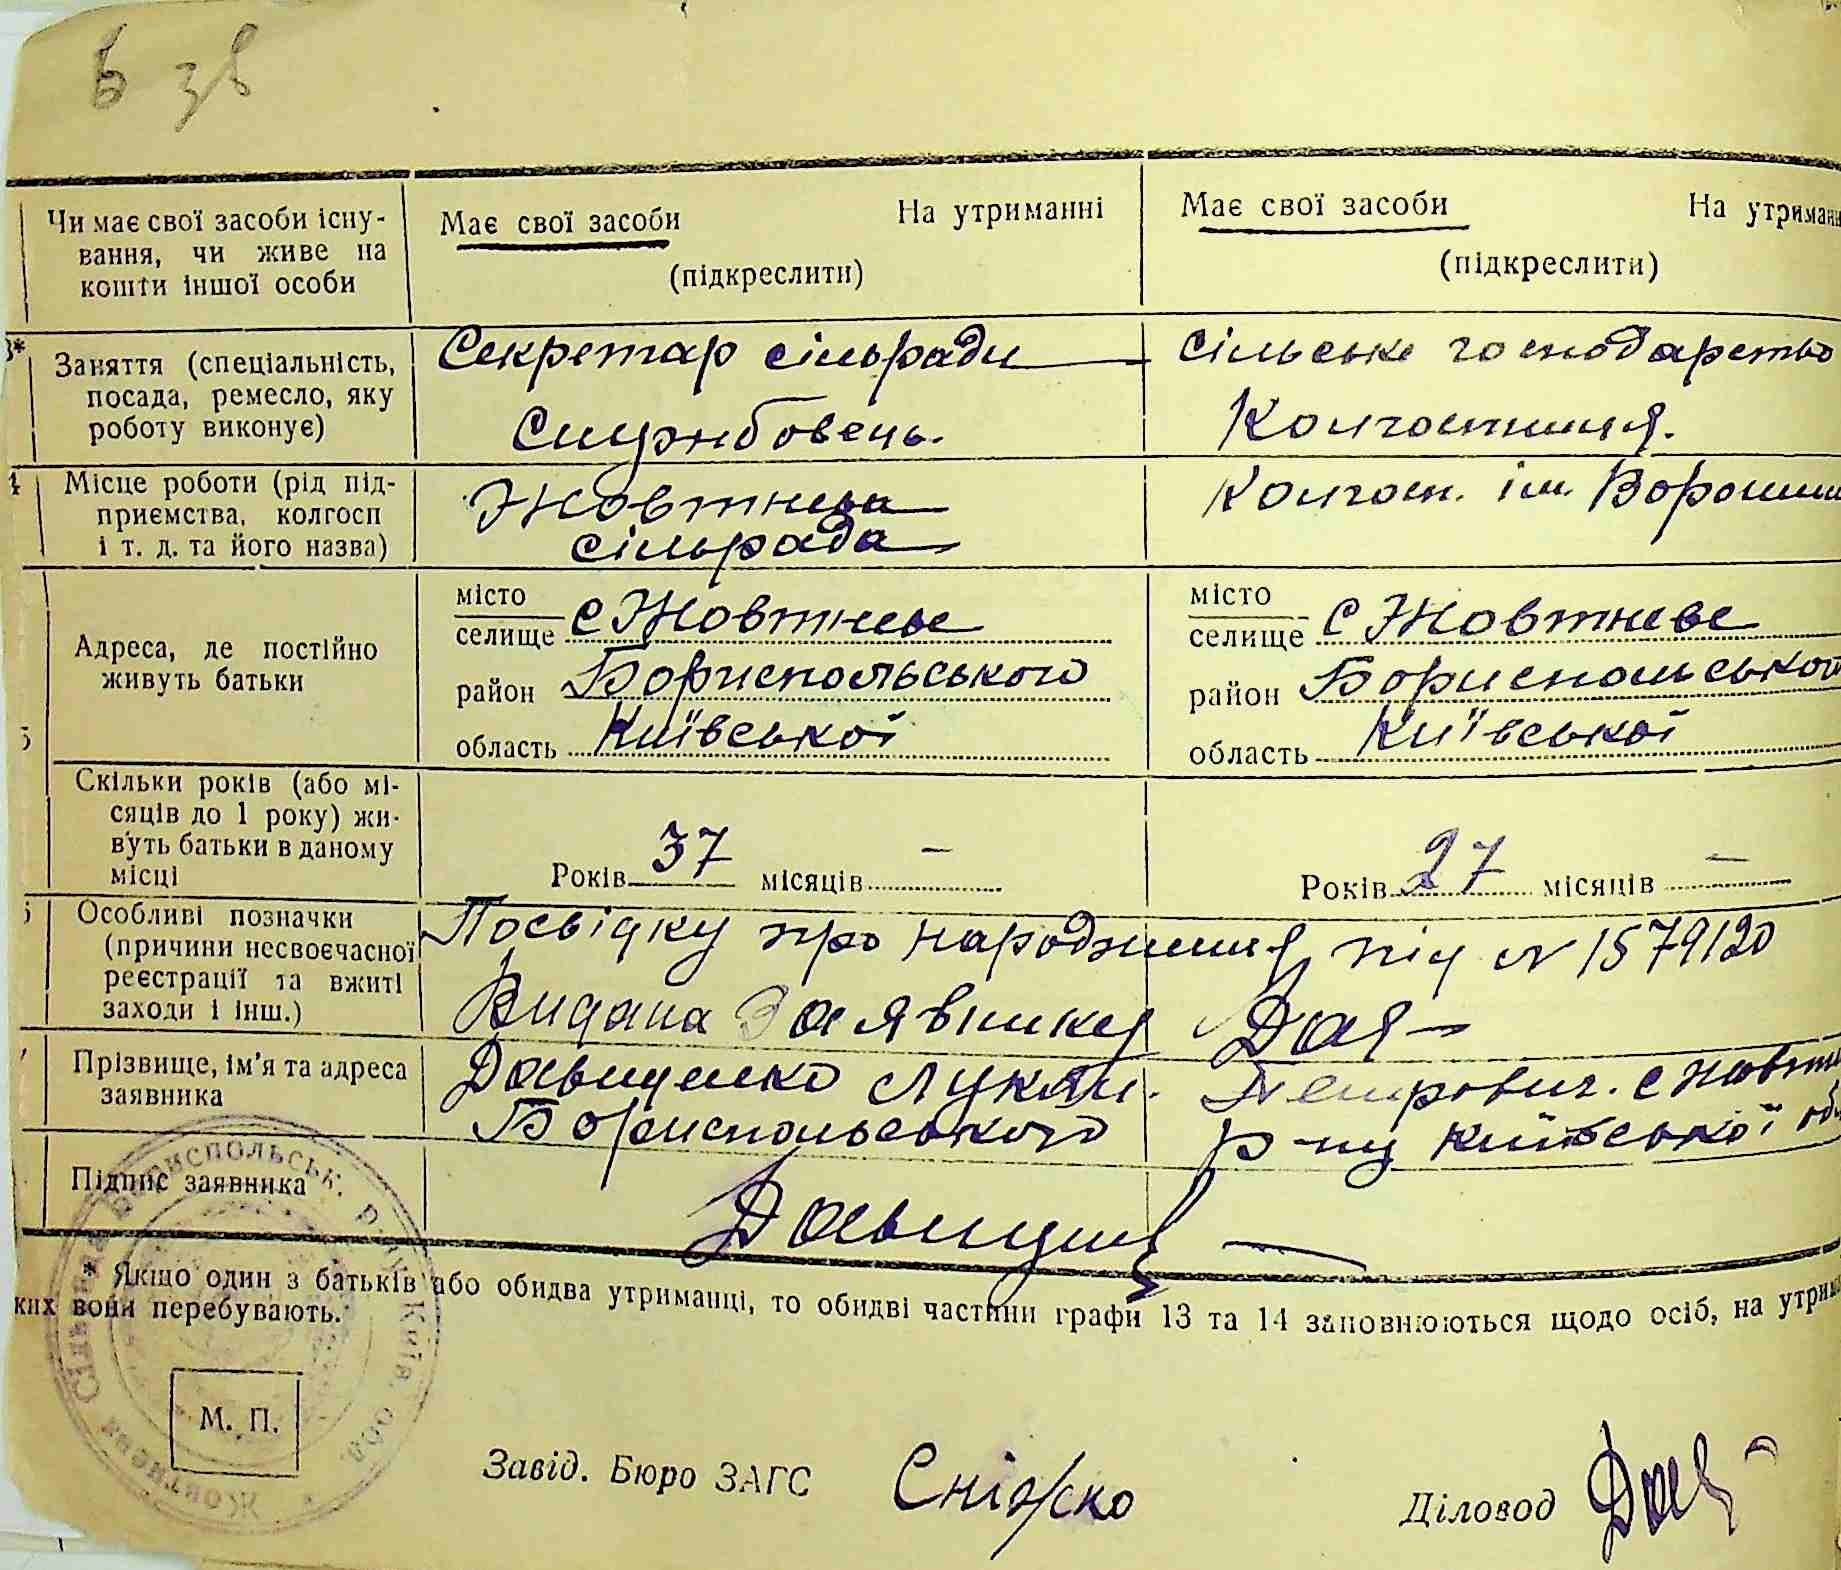 Б зв
Чи має свої засоби існу-
вання, чи живе на
кошти іншої особи
Має свої засоби На утриманні
(підкреслити)
Має свої засоби На утриман
(підкреслити)
3*
Заняття (спеціальність,
посада, ремесло, яку
роботу виконує)
Секретар сільради
Службовець.
сільське господарство
Колгоспниця.
4
Місце роботи (рід під-
приємства, колгосп
і т. д. та його назва)
Жовтнева
сільрада
Колгосп. ім. Ворошил
5
Адреса, де постійно
живуть батьки
місто
селище с Жовтневе
район Бориспольського
область Київської
місто
селище с Жовтневе
район Бориспольської
область Київської
Скільки років (або мі-
сяців до 1 року) жи-
вуть батьки в даному
місці
Років 37 місяців —
Років 27 місяців —
Особливі позначки
(причини несвоєчасної
реєстрації та вжиті
заходи і інш.)
Посвідку про народження під № 1579120
Видана Заявнику Дав
Прізвище, ім'я та адреса
заявника
Давиденко Лукян. Петрович. с Жовтн
Бориспольського р-ну Київської об
Підпис заявника
* Якщо один з батьків або обидва утриманці, то обидві частини графи 13 та 14 заповнюються щодо осіб, на утрим
ких вони перебувають.
Жовтнева Сільрада Бориспольськ. р-ну Київ. обл.
М. П.
Завід. Бюро ЗАГС Сніжко
Діловод